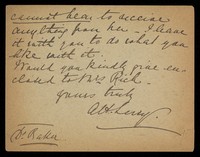 cannot bear to receive
anything from her - I leave
it with you to do what you
like with it.
Would you kindly give en-
closed to Mrs Rich.
Yours truly
Dr Baker